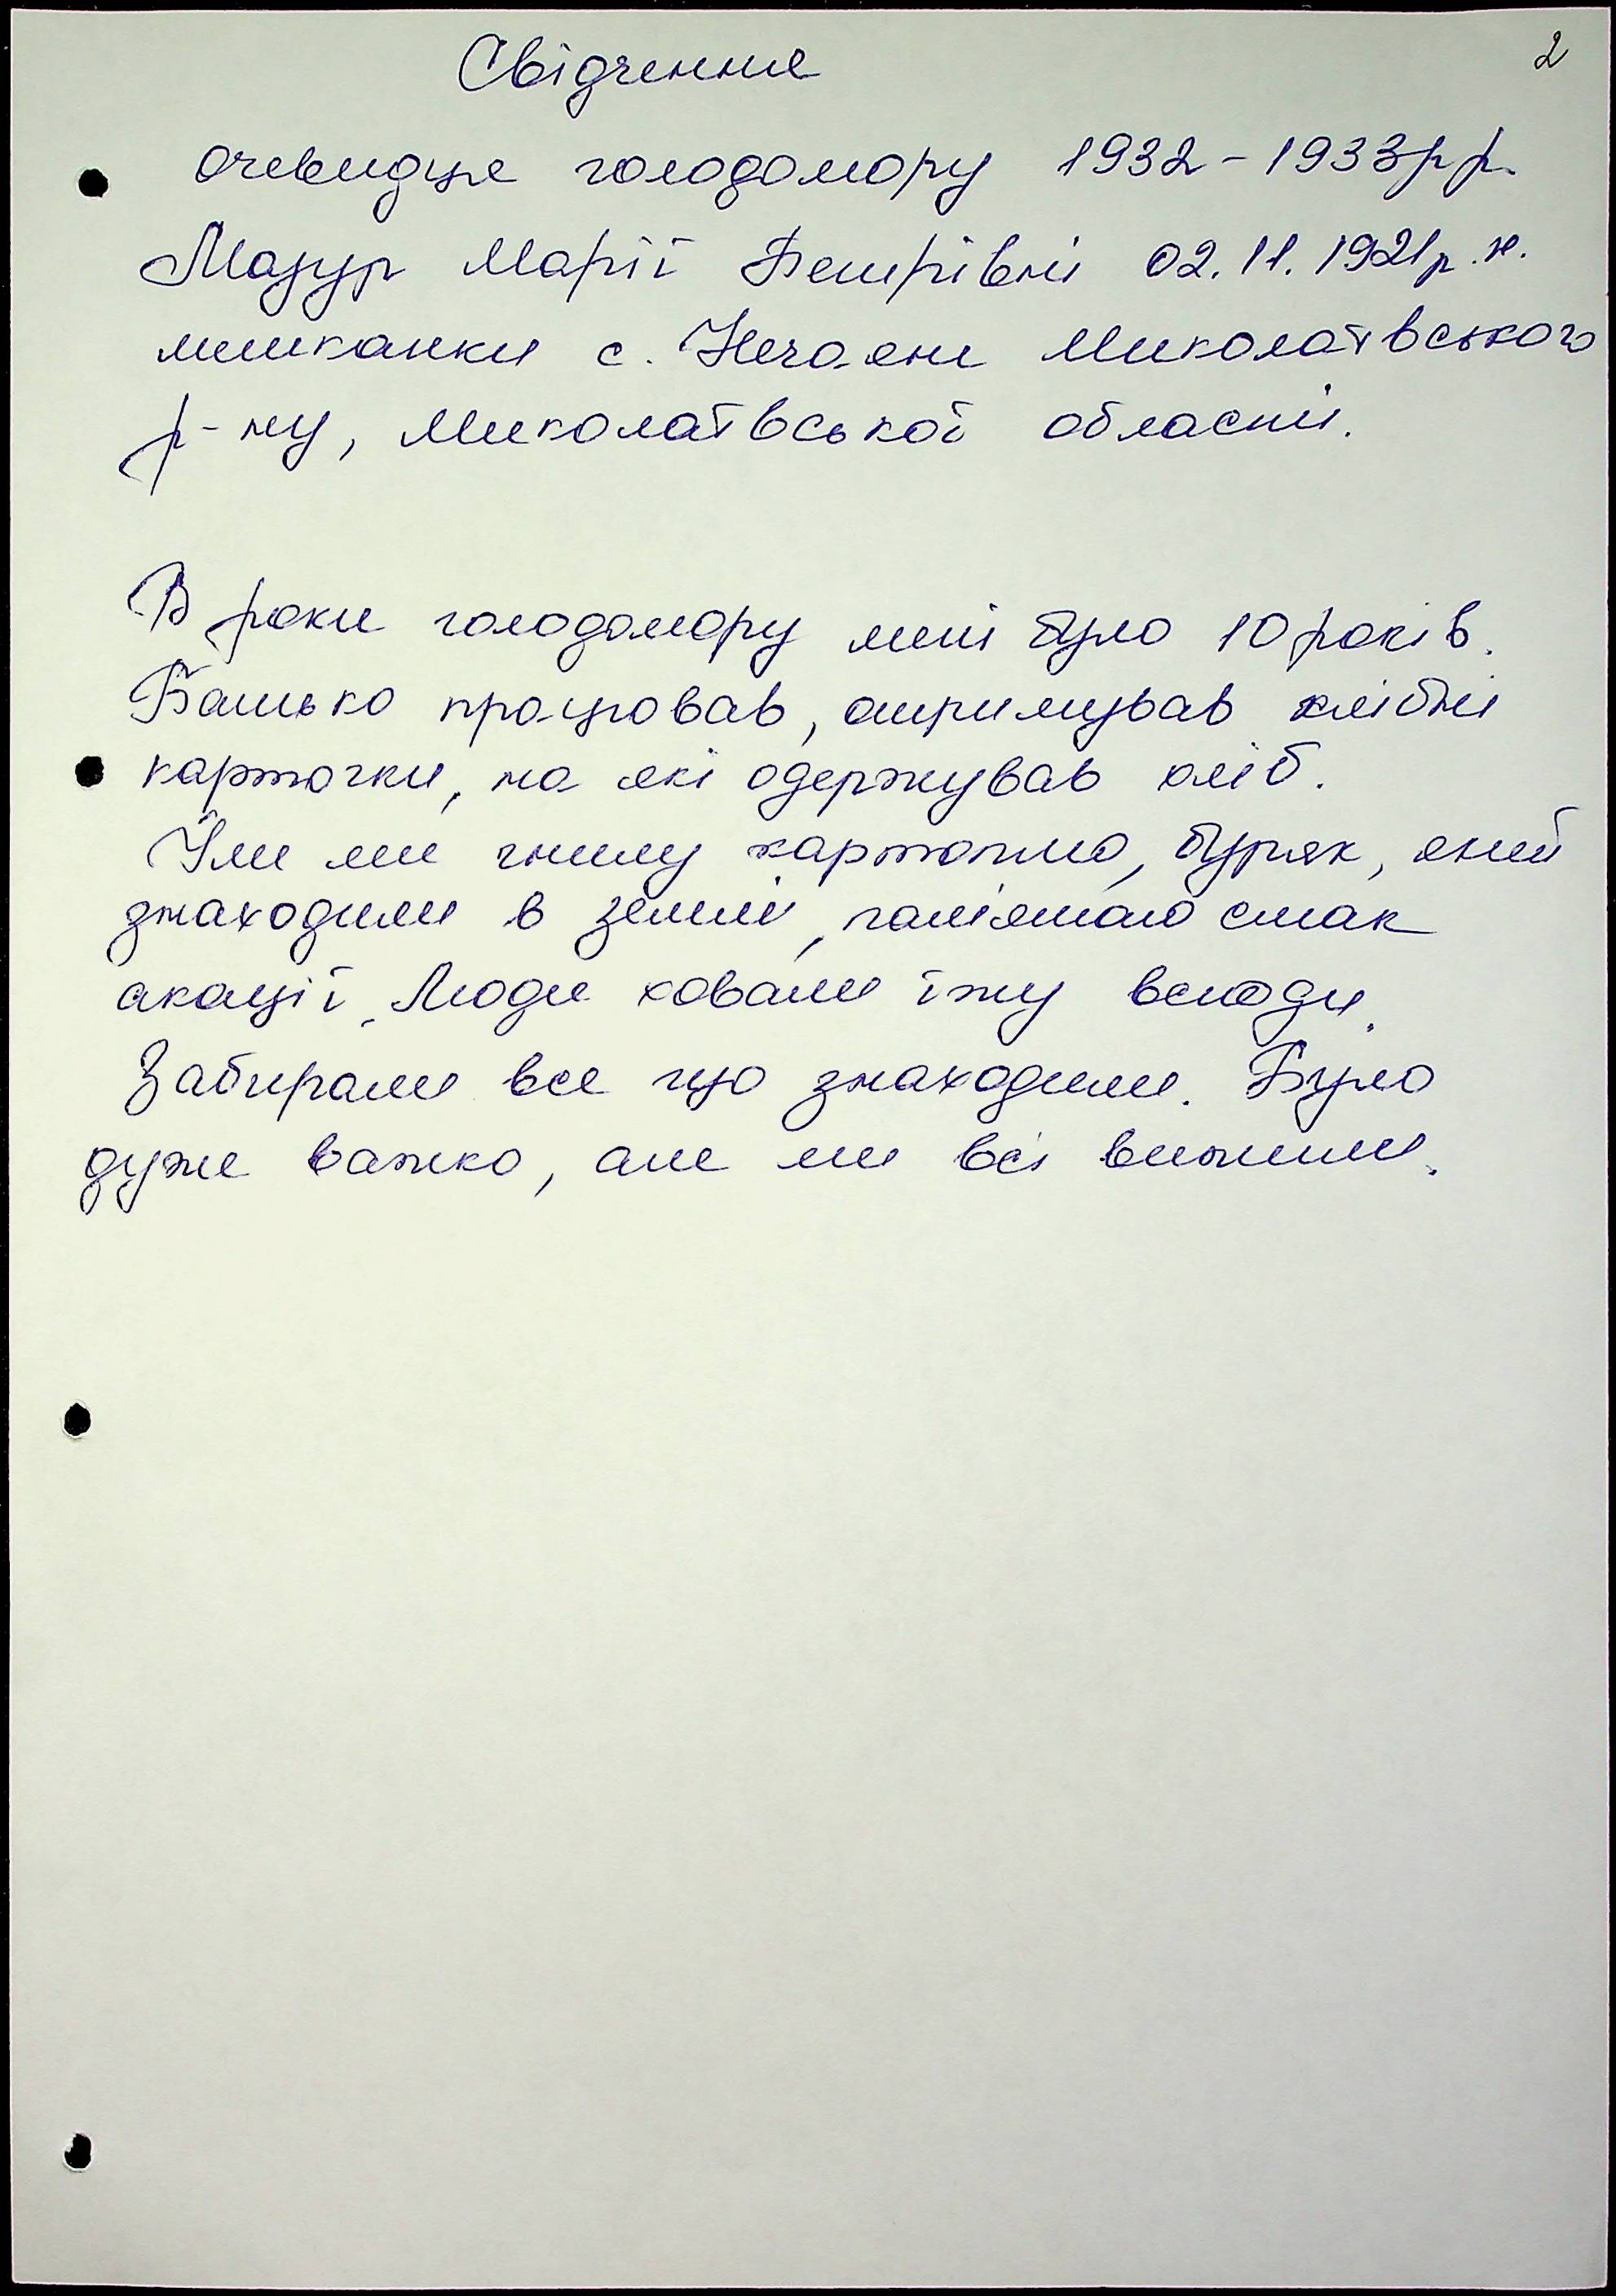 2
Свідчення
очевидця голодомору 1932-1933рр.
Мазур Марії Петрівни 02.11.1921р.н.
мешканки с. Нечаяне Миколаївського
р-ну, Миколаївської області.
В роки голодомору мені було 10 років.
Батько працював, отримував хлібні
карточки, на які одержував хліб.
Їли ми гнилу картоплю, буряк, який
знаходили в землі, пам'ятаю смак
акації. Люди ховали їжу всюди.
Забирали все що знаходили. Було
дуже важко, але ми всі вижили.